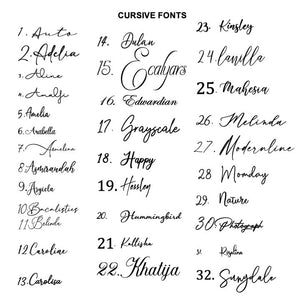 CURSIVE FONTS
1. Auto
2. Adelia
3. Adine
4. Amalfi
5. Amelia
6. Arabella
7. Amelina
8. Asmirandah
9. Asyiela
10. Bacalisties
11. Belinda
12. Caroline
13. Carolisa
14. Dulan
15. Ecalyars
16. Edwardian
17. Grayscale
18. Happy
19. Hossley
20. Hummingbird
21. Kallisha
22. Khatija
23. Kinsley
24. lavilla
25. Mahesia
26. Melinda
27. Modernline
28. Monday
29. Nature
30. Photograph
31.
32. Sunydale